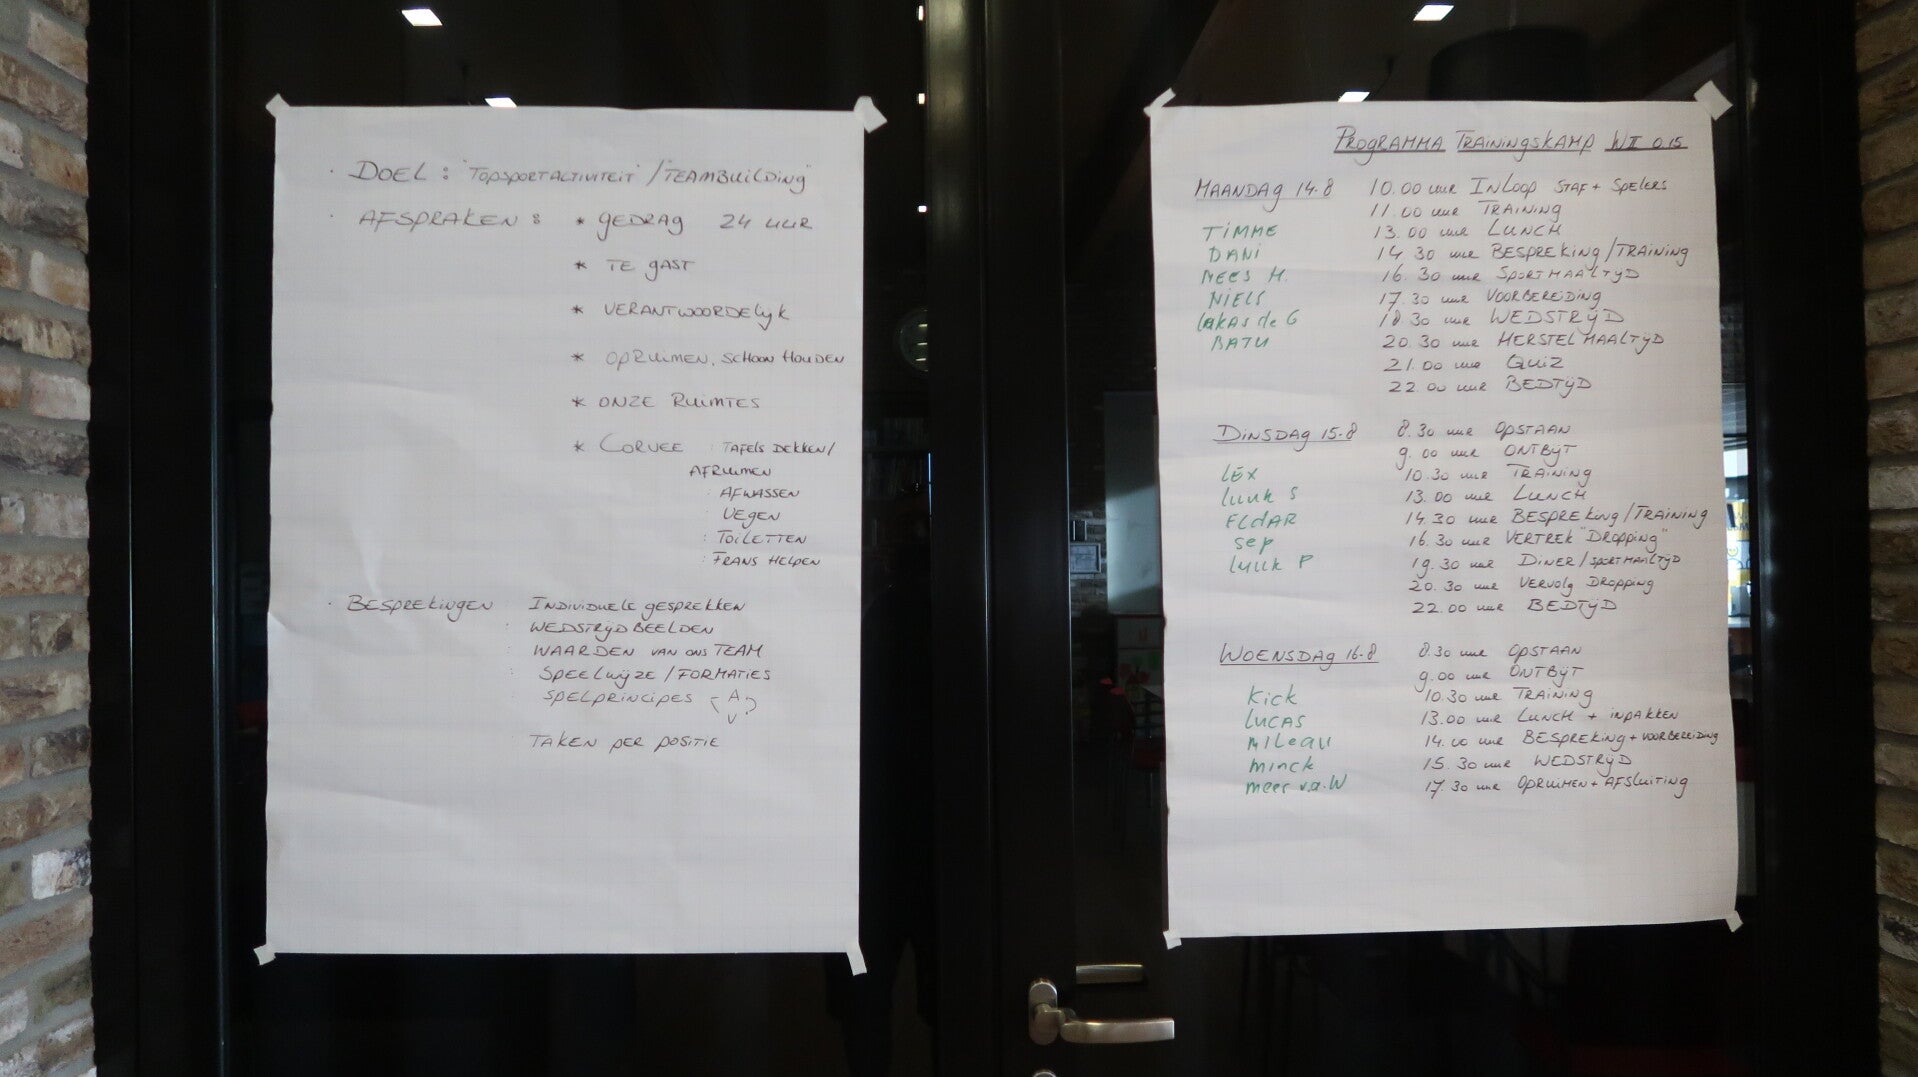 · DOEL : "TOPSPORTACTIVITEIT"/"TEAMBUILDING"
· AFSPRAKEN : * GEDRAG 24 UUR
* TE GAST
* VERANTWOORDELIJK
* OPRUIMEN, SCHOON HOUDEN
* ONZE RUIMTES
* CORVEE : TAFELS DEKKEN/
AFRUIMEN
: AFWASSEN
: VEGEN
: TOILETTEN
: FRANS HELPEN
· BESPREKINGEN INDIVIDUELE GESPREKKEN
: WEDSTRIJDBEELDEN
: WAARDEN VAN ONS TEAM
: SPEELWIJZE/FORMATIES
: SPELPRINCIPES A
V
TAKEN PER POSITIE
PROGRAMMA TRAININGSKAMP WII O15
MAANDAG 14-8 10.00 uur INLOOP STAF + SPELERS
11.00 uur TRAINING
TIMME 13.00 uur LUNCH
DANI 14.30 uur BESPREKING/TRAINING
MEES H. 16.30 uur SPORTMAALTIJD
NIELS 17.30 uur VOORBEREIDING
LUKAS de G 18.30 uur WEDSTRIJD
BATU 20.30 uur HERSTELMAALTIJD
21.00 uur QUIZ
22.00 uur BEDTIJD
DINSDAG 15-8 8.30 uur OPSTAAN
9.00 uur ONTBIJT
LEX 10.30 uur TRAINING
Luuk S 13.00 uur LUNCH
ELdAR 14.30 uur BESPREKING/TRAINING
sep 16.30 uur VERTREK "DROPPING"
Luuk P 19.30 uur DINER/SPORTMAALTIJD
20.30 uur VERVOLG DROPPING
22.00 uur BEDTIJD
WOENSDAG 16-8 8.30 uur OPSTAAN
9.00 uur ONTBIJT
Kick 10.30 uur TRAINING
LUCAS 13.00 uur LUNCH + INPAKKEN
MILEAU 14.00 uur BESPREKING + VOORBEREIDING
minck 15.30 uur WEDSTRIJD
mees v.a.W 17.30 uur OPRUIMEN + AFSLUITING